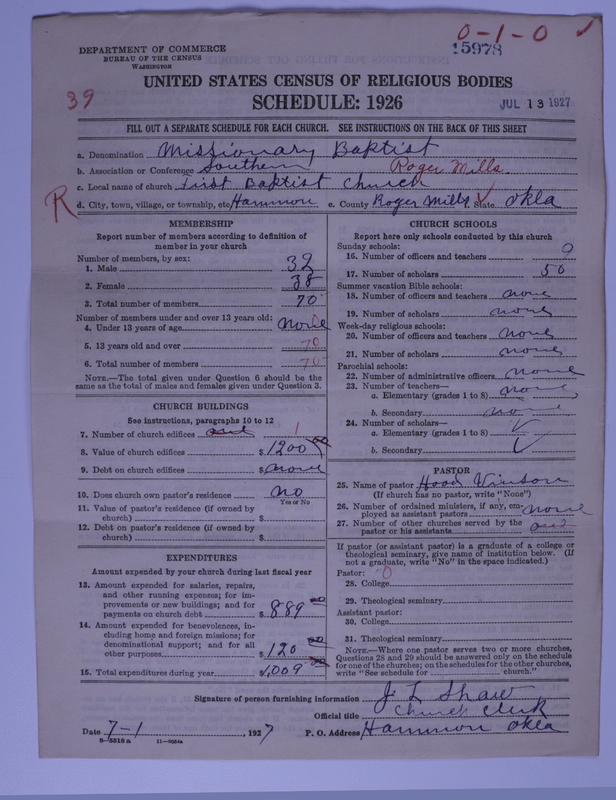 0-1-0
15978
DEPARTMENT OF COMMERCE
BUREAU OF THE CENSUS
WASHINGTON
UNITED STATES CENSUS OF RELIGIOUS BODIES
39
SCHEDULE: 1926
JUL 13 1927
FILL OUT A SEPARATE SCHEDULE FOR EACH CHURCH. SEE INSTRUCTIONS ON THE BACK OF THIS SHEET
a. Denomination Missionary Baptist
b. Association or Conference Southern Roger Mills.
c. Local name of church First Baptist Church
R
d. City, town, village, or township, etc. Hammon e. County Roger Mills f. State Okla
MEMBERSHIP
Report number of members according to definition of
member in your church
Number of members, by sex:
1. Male 32
2. Female 38
3. Total number of members 70
Number of members under and over 13 years old:
4. Under 13 years of age none
5. 13 years old and over 70
6. Total number of members 70
NOTE.—The total given under Question 6 should be
same as the total of males and females given under Question 3.
CHURCH BUILDINGS
See instructions, paragraphs 10 to 12
7. Number of church edifices one 1
8. Value of church edifices $1200 00
9. Debt on church edifices $none
10. Does church own pastor's residence no
Yes or No
11. Value of pastor's residence (if owned by
church) $
12. Debt on pastor's residence (if owned by
church) $
EXPENDITURES
Amount expended by your church during last fiscal year
13. Amount expended for salaries, repairs,
and other running expenses; for im-
provements or new buildings; and for
payments on church debt $889 00
14. Amount expended for benevolences, in-
cluding home and foreign missions; for
denominational support; and for all
other purposes $120 00
15. Total expenditures during year $1,009 00
CHURCH SCHOOLS
Report here only schools conducted by this church
Sunday schools:
16. Number of officers and teachers 9
17. Number of scholars 50
Summer vacation Bible schools:
18. Number of officers and teachers none
19. Number of scholars none
Week-day religious schools:
20. Number of officers and teachers none
21. Number of scholars none
Parochial schools:
22. Number of administrative officers none
23. Number of teachers—
a. Elementary (grades 1 to 8) none
b. Secondary none
24. Number of scholars—
a. Elementary (grades 1 to 8)
b. Secondary
PASTOR
25. Name of pastor Hood Vinson
(If church has no pastor, write "None")
26. Number of ordained ministers, if any, em-
ployed as assistant pastors none
27. Number of other churches served by the
pastor or his assistants
If pastor (or assistant pastor) is a graduate of a college or
theological seminary, give name of institution below. (If
not a graduate, write "No" in the space indicated.)
Pastor: 0
28. College
29. Theological seminary
Assistant pastor:
30. College
31. Theological seminary
NOTE.—Where one pastor serves two or more churches,
Questions 28 and 29 should be answered only on the schedule
for one of the churches; on the schedules for the other churches,
write "See schedule for church."
Signature of person furnishing information J L Shaw
Official title Church Clerk
Date 7-1, 1927 P. O. Address Hammon Okla
8-5318a 11-9084a